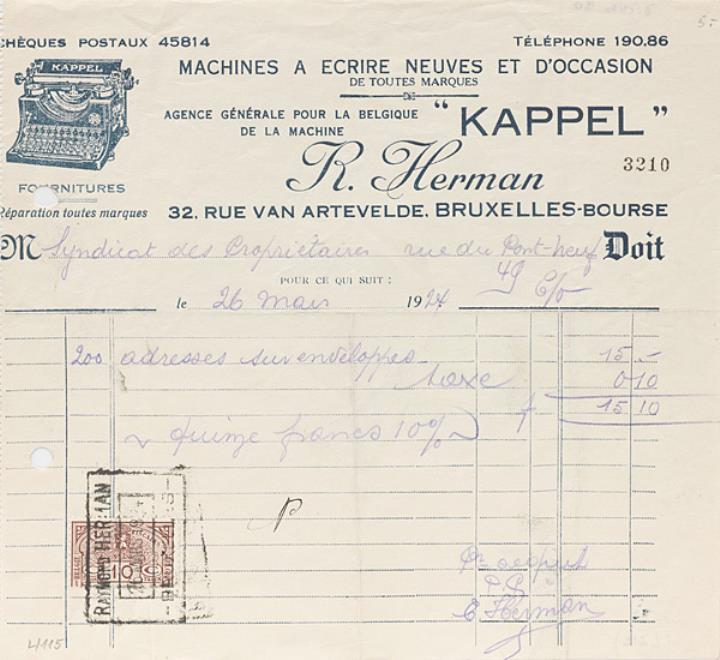 CHÈQUES POSTAUX 45814
TÉLÉPHONE 190,86
5.-
KAPPEL
MACHINES A ECRIRE NEUVES ET D'OCCASION
DE TOUTES MARQUES
AGENCE GÉNÉRALE POUR LA BELGIQUE
DE LA MACHINE
"KAPPEL"
R. Herman
3210
FOURNITURES
Réparation toutes marques
32, RUE VAN ARTEVELDE, BRUXELLES-BOURSE
M Syndicat des Propriétaires rue du Pont-neuf Doit
49
POUR CE QUI SUIT :
le 26 mars 1924
200 adresses sur enveloppes 15 .-
taxe 0 10
f 15 10
quinze francs 10%
RAYMOND HERMAN
10
Pr acquit
Herman
L/115